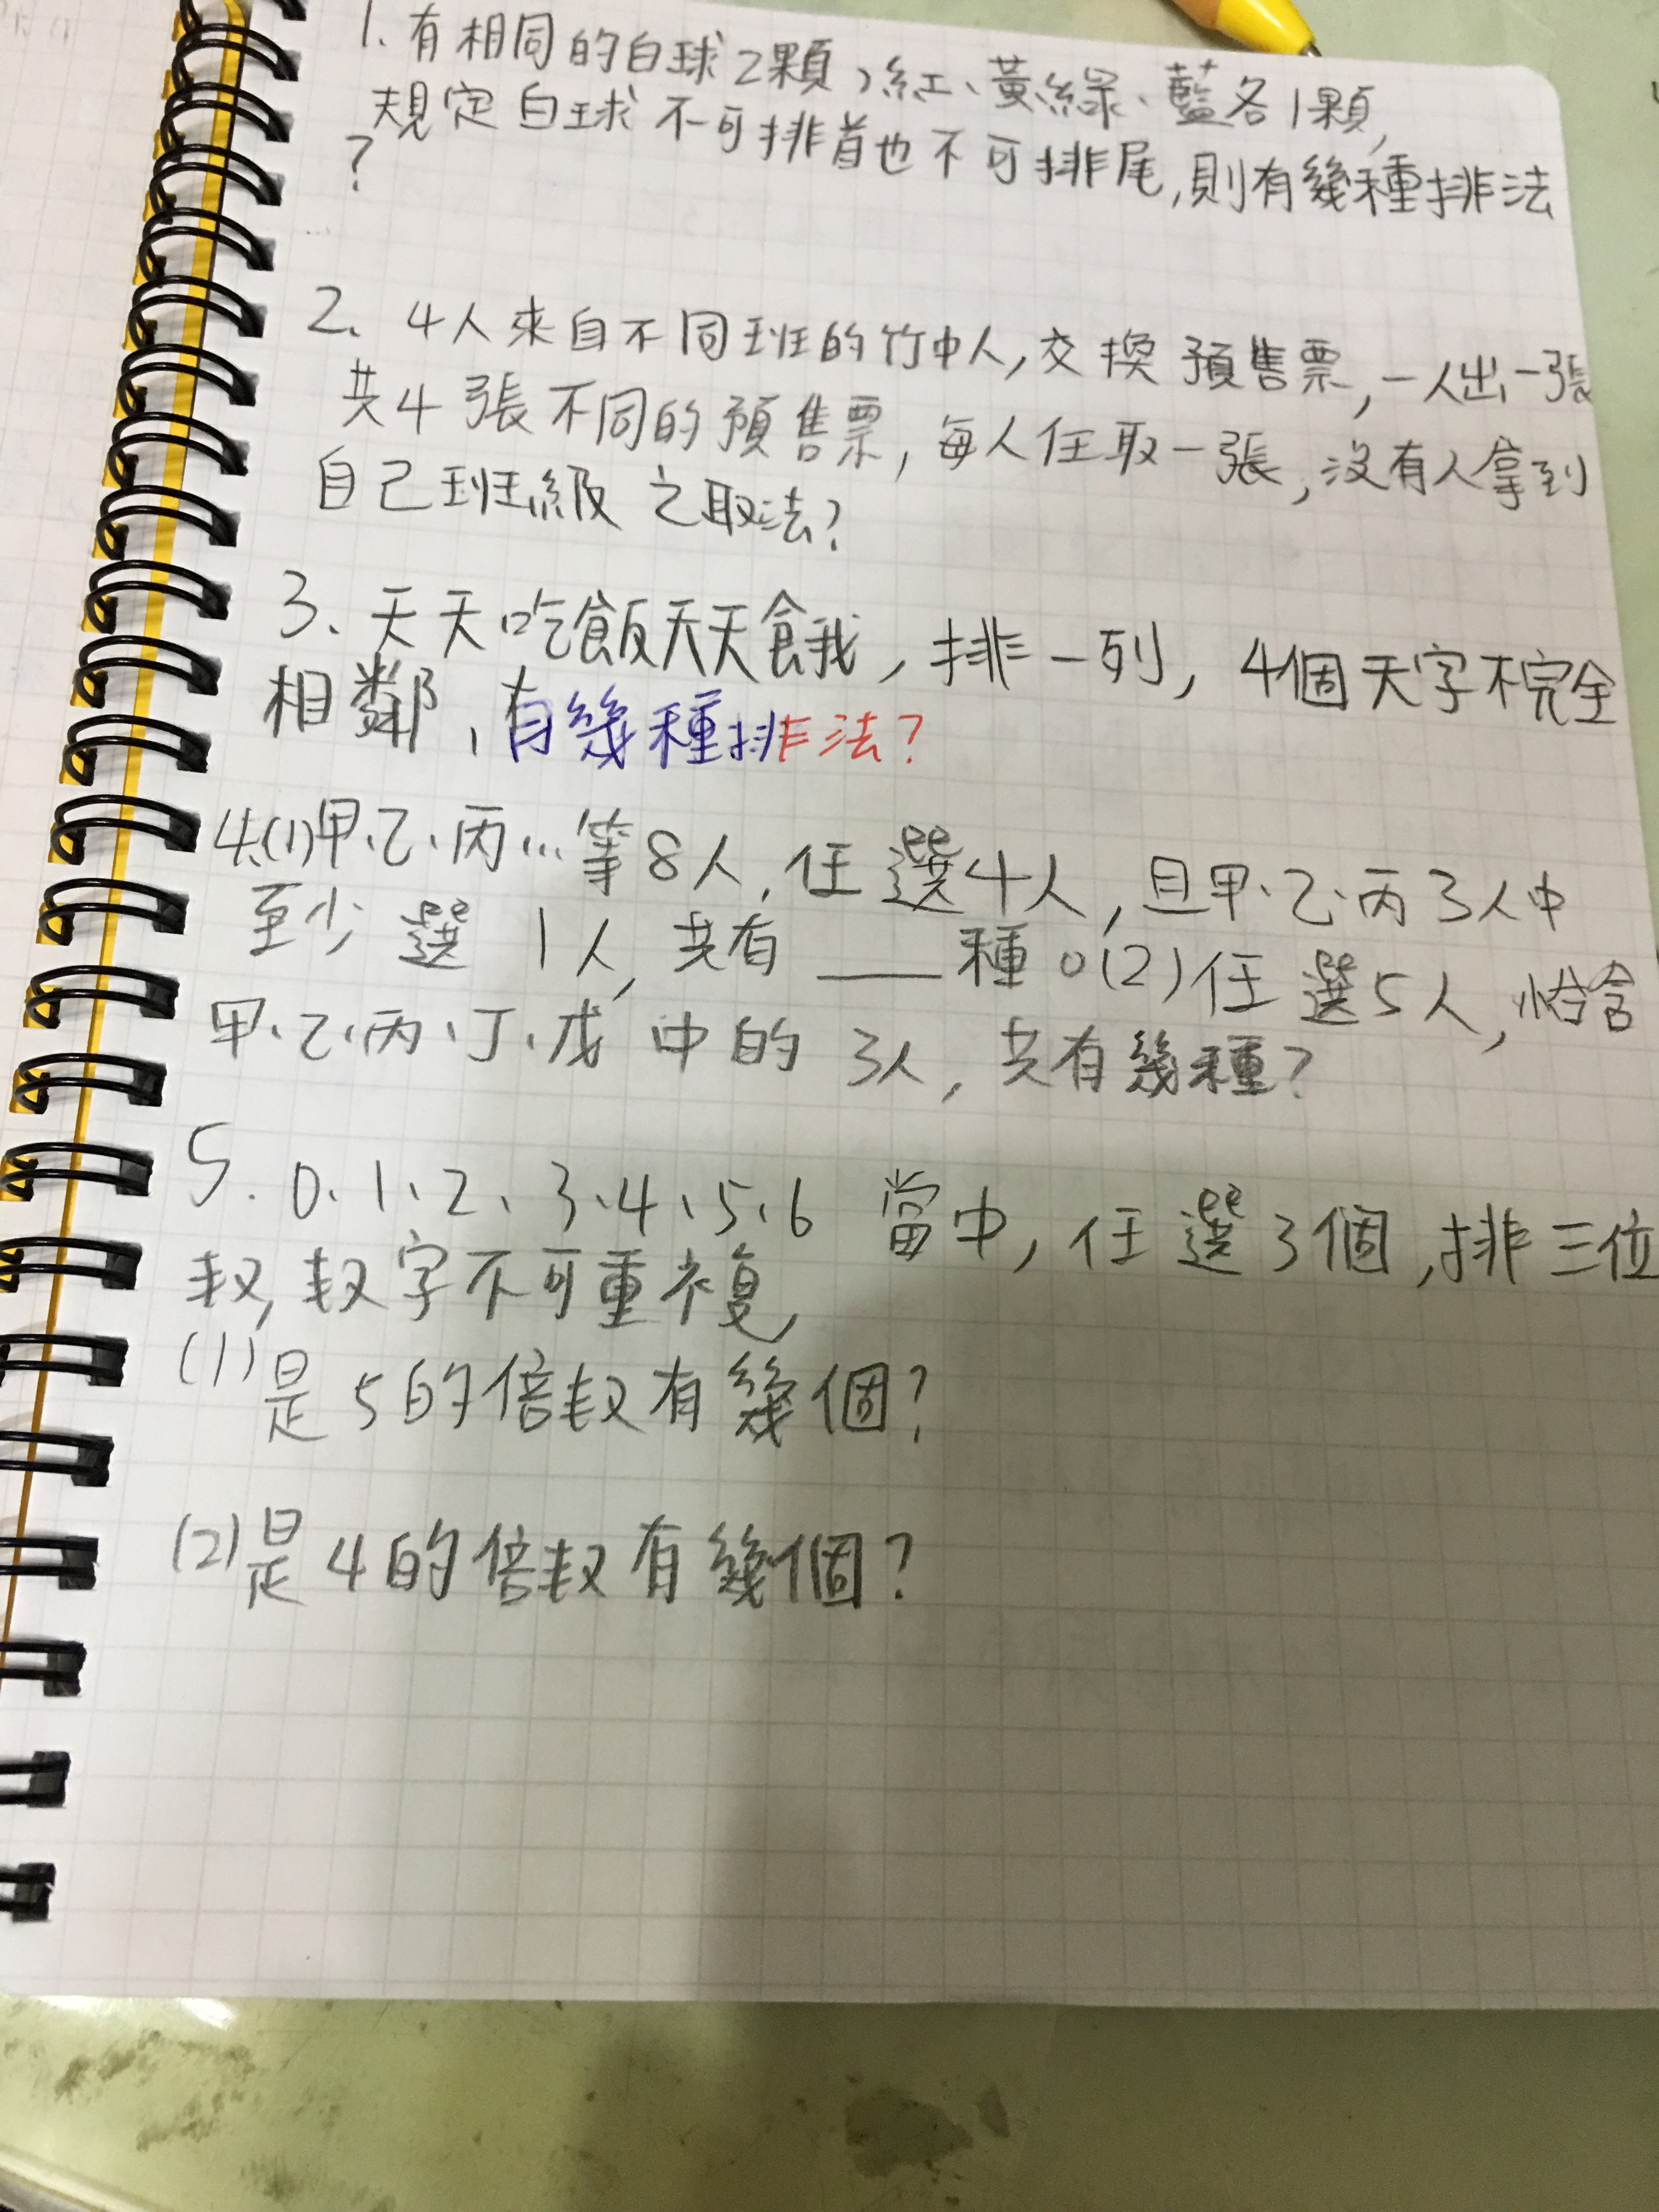 1.有相同的白球2顆,紅、黃、綠、藍各1顆,
規定白球不可排首也不可排尾,則有幾種排法
?
2. 4人來自不同班的竹中人,交換預售票,一人出一張
共4張不同的預售票,每人任取一張,沒有人拿到
自己班級之取法?
3、天天吃飯天天餓,排一列,4個天字不完全
相鄰,有幾種排法?
4.(1)甲、乙、丙…等8人,任選4人,且甲、乙、丙3人中
至少選1人,共有___種。(2)任選5人,恰含
甲、乙、丙、丁、戊中的3人,共有幾種?
5. 0、1、2、3、4、5、6當中,任選3個,排三位
数,数字不可重複,
(1)是5的倍数有幾個?
(2)是4的倍数有幾個?